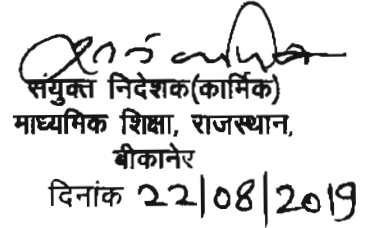 संयुक्त निदेशक(कार्मिक)
माध्यमिक शिक्षा, राजस्थान,
बीकानेर
दिनांक 22/08/2019